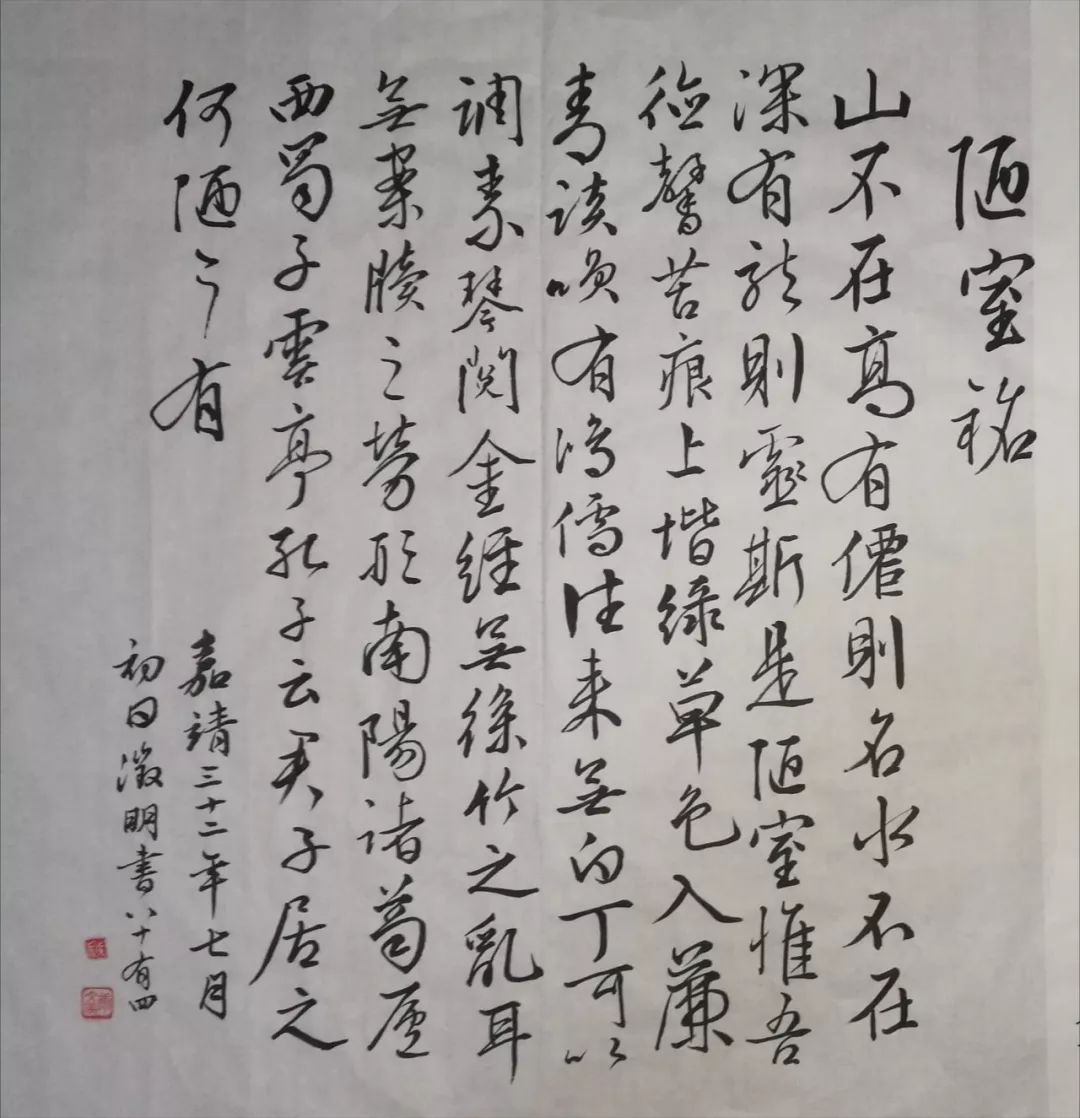 陋室銘
山不在高有僊則名水不在
深有龍則靈斯是陋室惟吾
德馨苔痕上堦綠草色入簾
青談咲有鴻儒往来無白丁可以
調素琴閱金經無絲竹之亂耳
無案牘之勞形南陽諸葛廬
西蜀子雲亭孔子云君子居之
何陋之有
嘉靖三十二年七月
初日徵明書八十有四